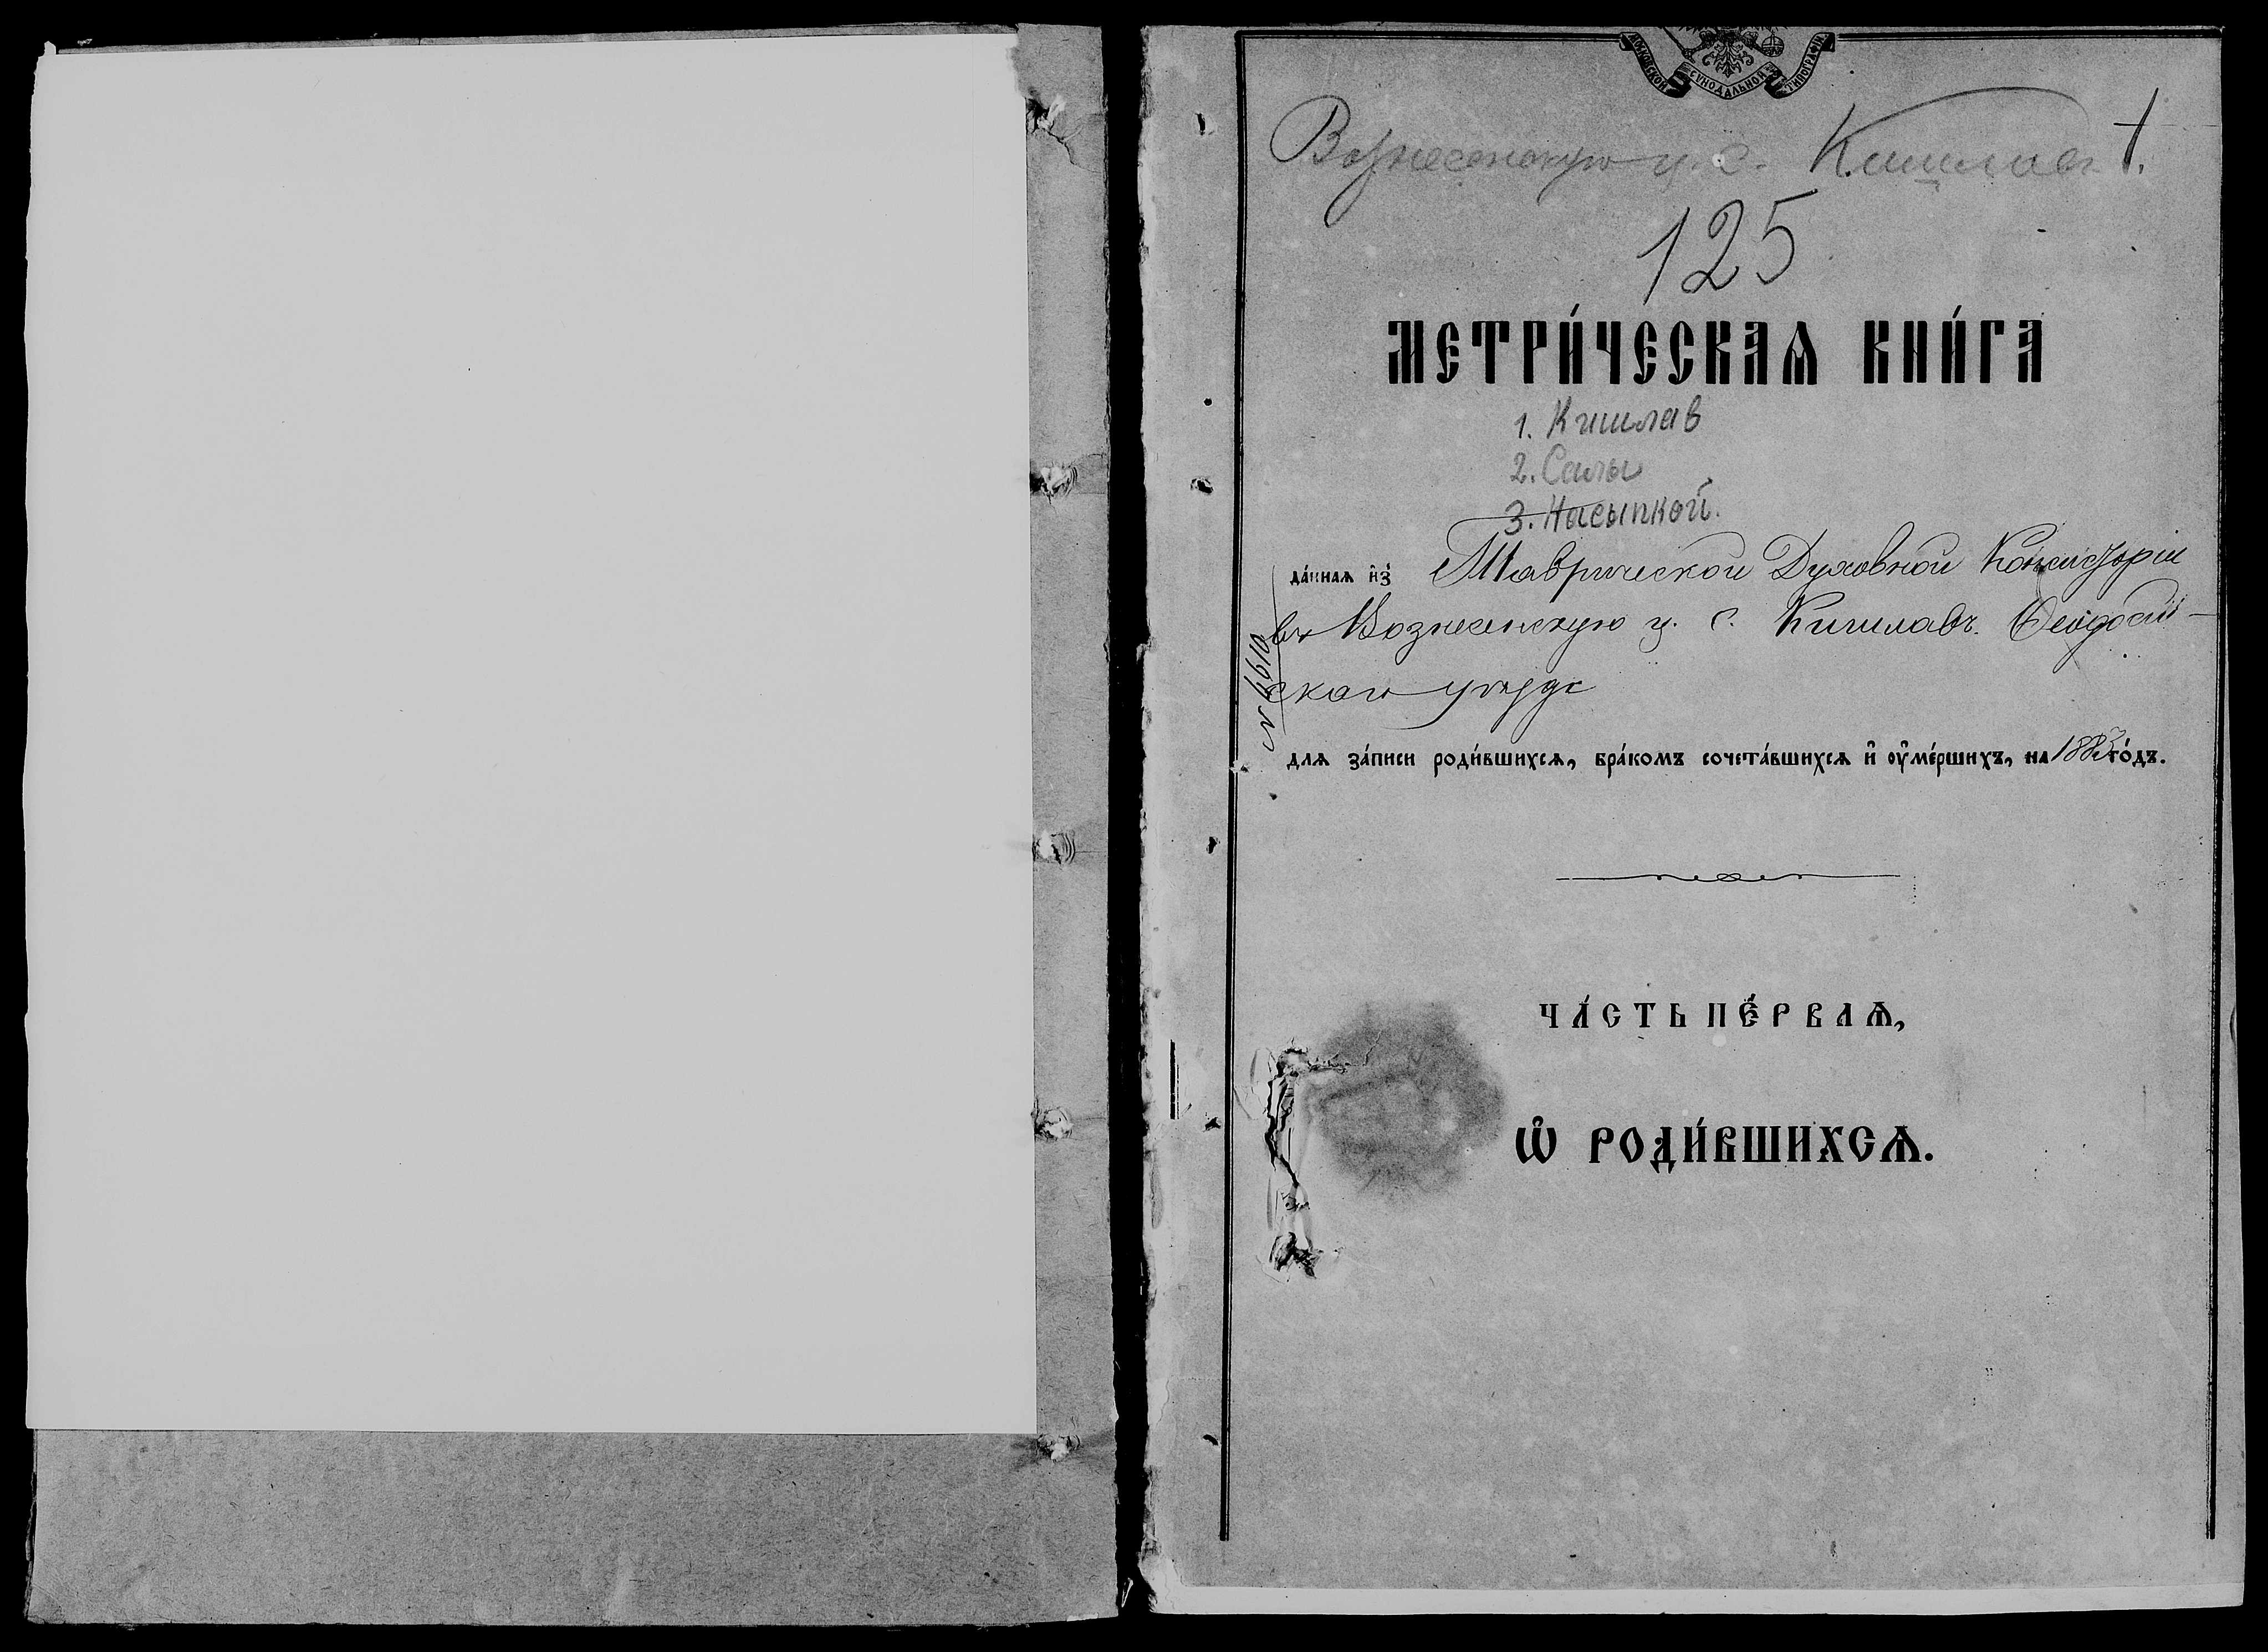 МОСКОВСКОЙ СѴНОДАЛЬНОЙ ТИПОГРАФІИ
Вознесенскую ц. с. Кишлавъ.
125
МЕТРИ́ЧЕСКАѦ КНИ́ГА
1. Кишлав
2. Салы
3. Насыпкой.
да́ннаѧ и҆з̾ Таврической Духовной Консисторіи
въ Вознесенскую ц. с. Кишлавъ. Ѳеодосій-
скаго уѣзда
№ 6610
длѧ за́писи роди́вшихсѧ, бра́комъ сочета́вшихсѧ и҆ ᲂу҆ме́ршихъ, на 1883 го́дъ.
ЧА́СТЬ ПЕ́РВАѦ,
Ѡ҆ РОДИ́ВШИХСѦ.